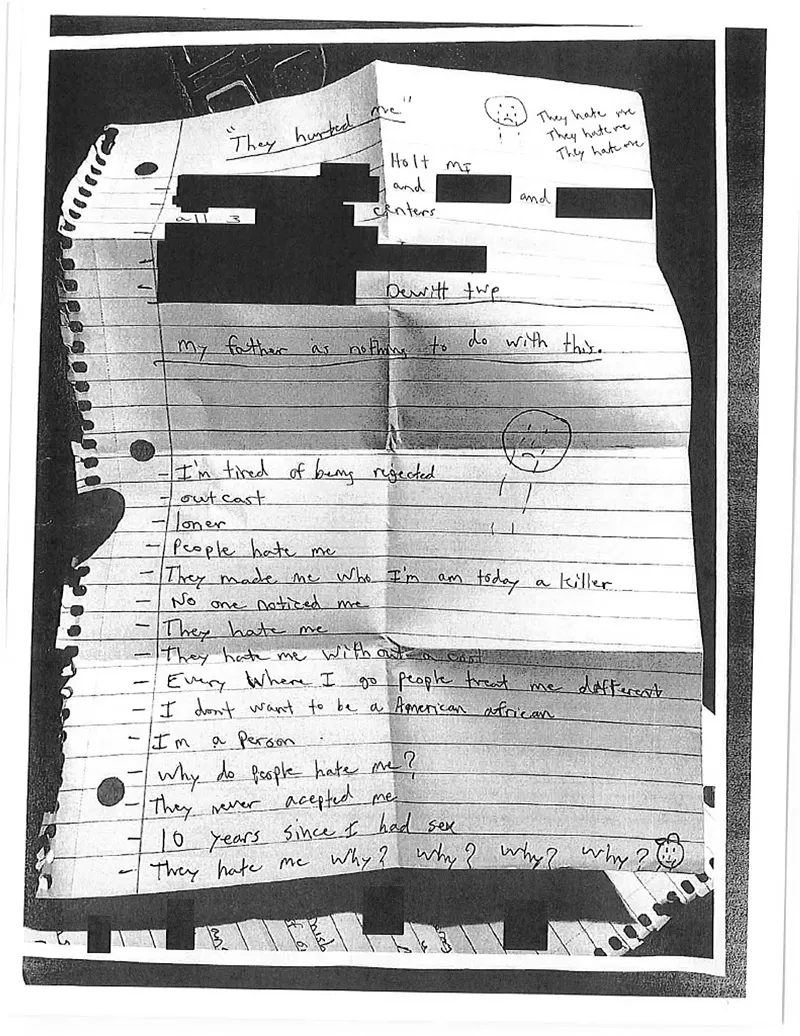 "They hurted me"
They hate me
They hate me
They hate me
Holt MI
and and
all 3 centers
Dewitt twp
My father as nothing to do with this.
- I'm tired of being rejected
- outcast
- loner
- People hate me
- They made me who I'm am today a killer
- No one noticed me
- They hate me
- They hate me without a
- Every Where I go people treat me different
- I don't want to be a American african
- I'm a Person.
- Why do people hate me?
- They never acepted me
- 10 years since I had sex
- They hate me Why? Why? Why? Why?